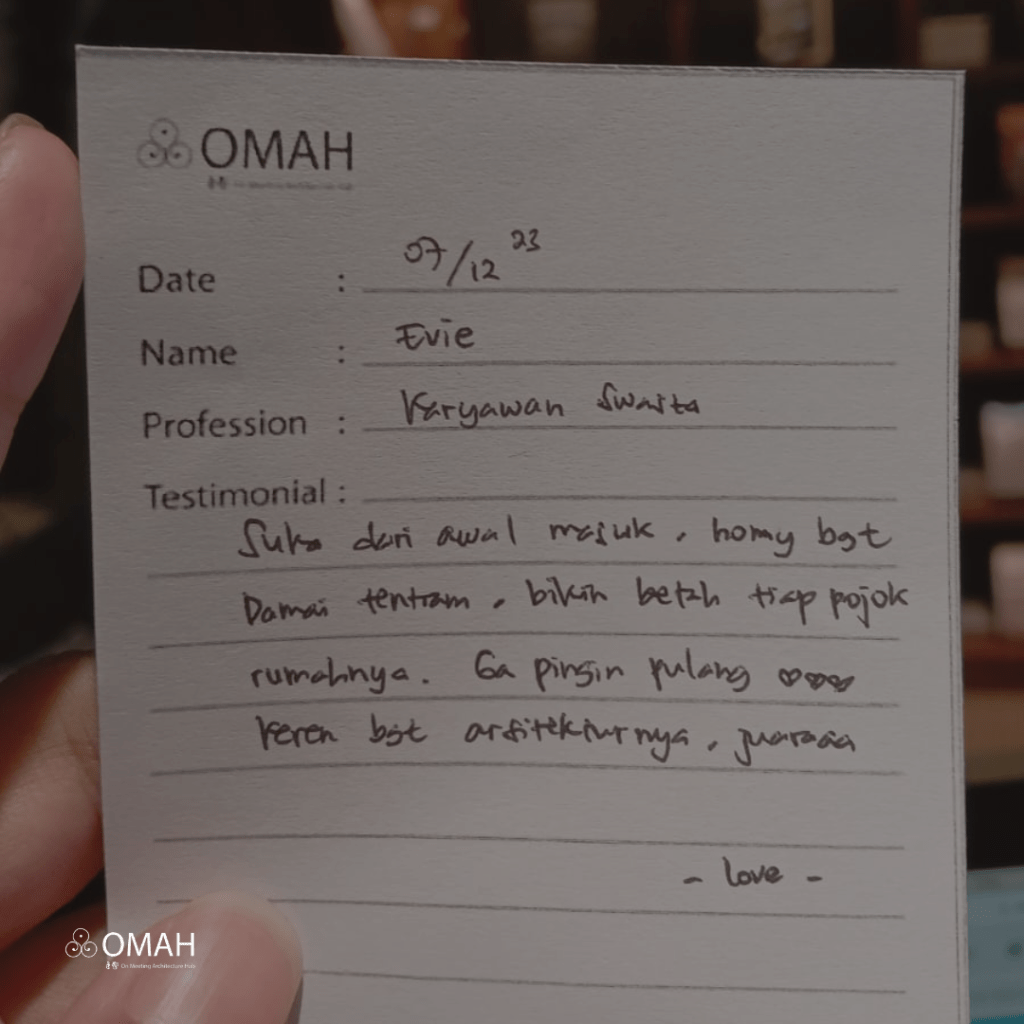 OMAH
Date : 07/12 23
Name : Evie
Profession : Karyawan Swasta
Testimonial :
Suka dari awal masuk, homy bgt
Damai tentram, bikin betah tiap pojok
rumahnya. Ga pingin pulang ♡♡♡♡
Keren bgt arsitekturnya, juaraaa
- love -
OMAH
On Meeting Architecture Hub